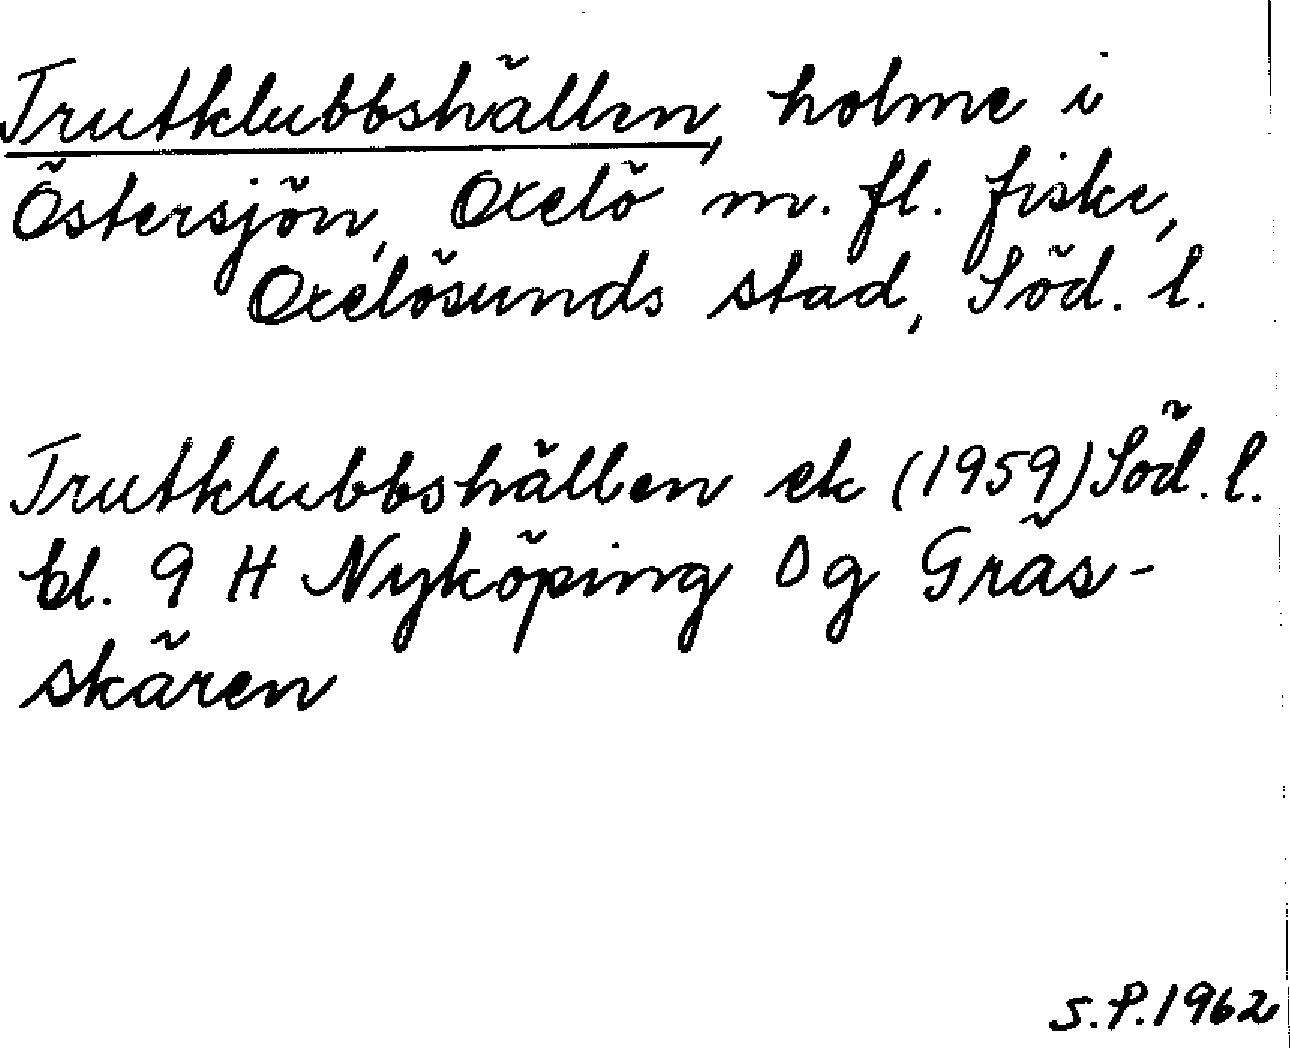 Trutklubbshällen, holme i
Östersjön, Oxelö m. fl. fiske,
Oxelösunds stad, Söd. l.
Trutklubbshällen ek (1959) Söd. l.
bl. 9 H Nyköping 0g Gräs-
skären
S.P. 1962